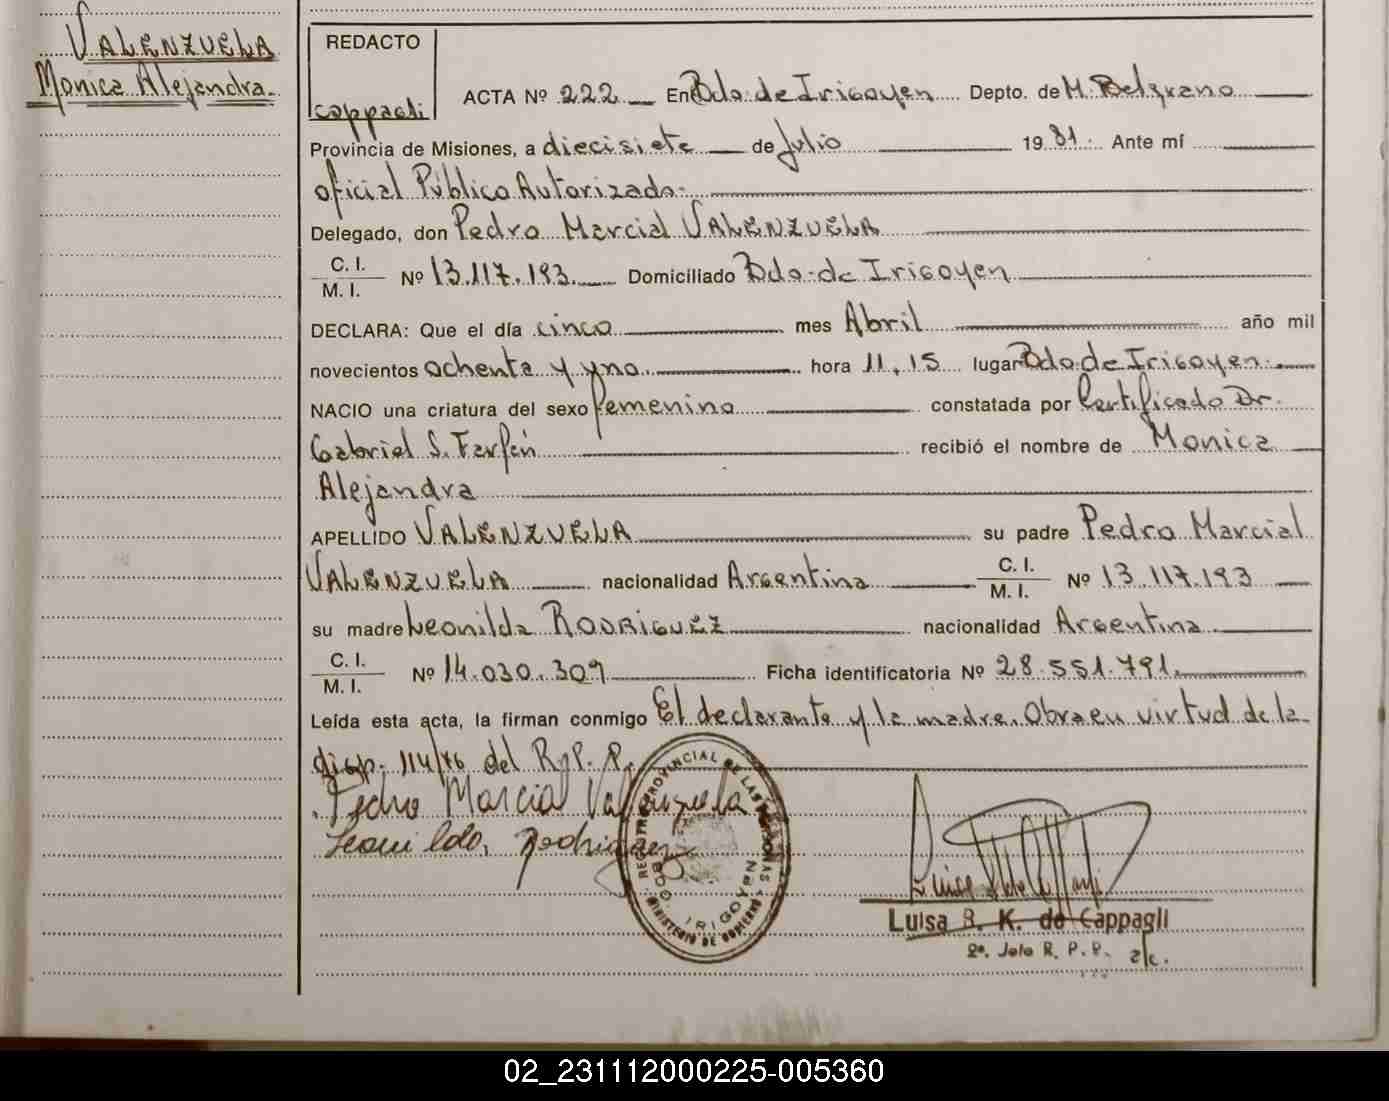 VALENZUELA
Monica Alejandra.
REDACTO
Cappagli
ACTA Nº 222 En Bdo. de Irigoyen Depto. de M. Belgrano
Provincia de Misiones, a diecisiete de Julio 19 81. Ante mí
oficial Público Autorizado.
Delegado, don Pedro Marcial VALENZUELA
C. I.
M. I. Nº 13.117.193. Domiciliado Bdo. de Irigoyen
DECLARA: Que el día cinco mes Abril año mil
novecientos ochenta y uno. hora 11,15 lugar Bdo de Irigoyen.
NACIO una criatura del sexo femenino constatada por Certificado Dr.
Gabriel S. Farfán recibió el nombre de Monica
Alejandra
APELLIDO VALENZUELA su padre Pedro Marcial
VALENZUELA nacionalidad Argentina C. I. M. I. Nº 13.117.193
su madre Leonilda RODRIGUEZ nacionalidad Argentina.
C. I.
M. I. Nº 14.030.309 Ficha identificatoria Nº 28.551.791.
Leída esta acta, la firman conmigo El declarante y la madre. Obra en virtud de la
disp. 114/76 del R.P.P.
Pedro Marcial Valenzuela
Leonilda, Rodriguez
REGISTRO PROVINCIAL DE LAS PERSONAS
MINISTERIO DE GOBIERNO
BDO. IRIGOYEN
Luisa B. K. de Cappagli
2º. Jefe R. P. P. a/c.
02_231112000225-005360